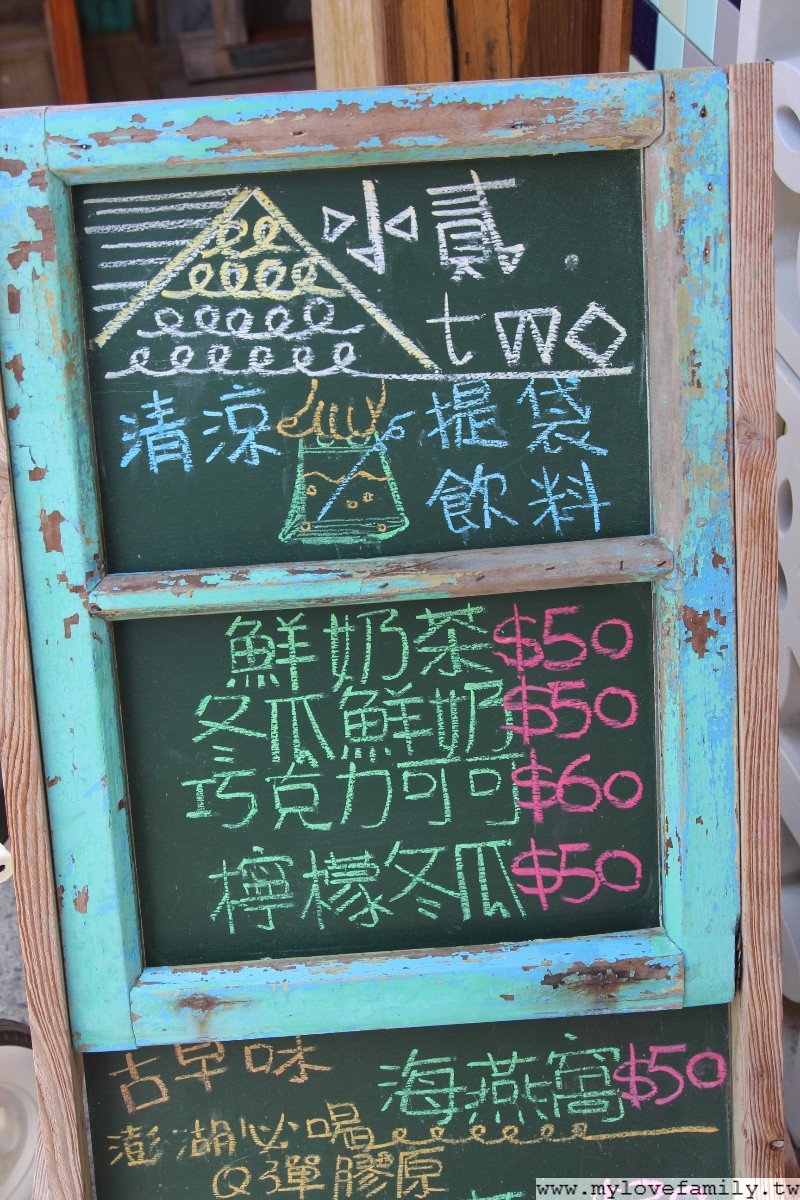 小貳.
two
清涼 提袋
飲料
鮮奶茶 $50
冬瓜鮮奶 $50
巧克力可可 $60
檸檬冬瓜 $50
古早味
海燕窩 $50
澎湖必喝
Q彈膠原
www.mylovefamily.tw